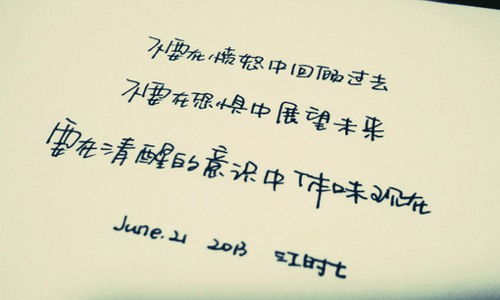 不要在愤怒中回顾过去
不要在恐惧中展望未来
要在清醒的意识中体味现在
June.21 2013 江时七